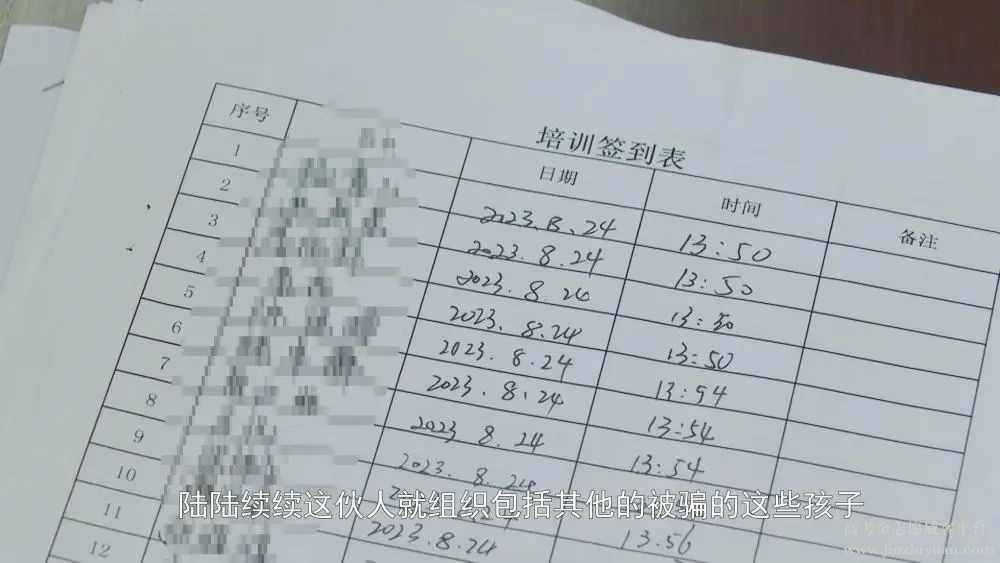 培训签到表
序号 日期 时间 备注
1 2023.8.24 13:50
2 2023.8.24 13:50
3 2023.8.24 13:50
4 2023.8.24 13:50
5 2023.8.24 13:54
6 2023.8.24 13:54
7 2023.8.24 13:54
8 2023.8.24
9 13.56
10 2023.8.24
11
12
陆陆续续这伙人就组织包括其他的被骗的这些孩子
www.jinzhiyuan.com